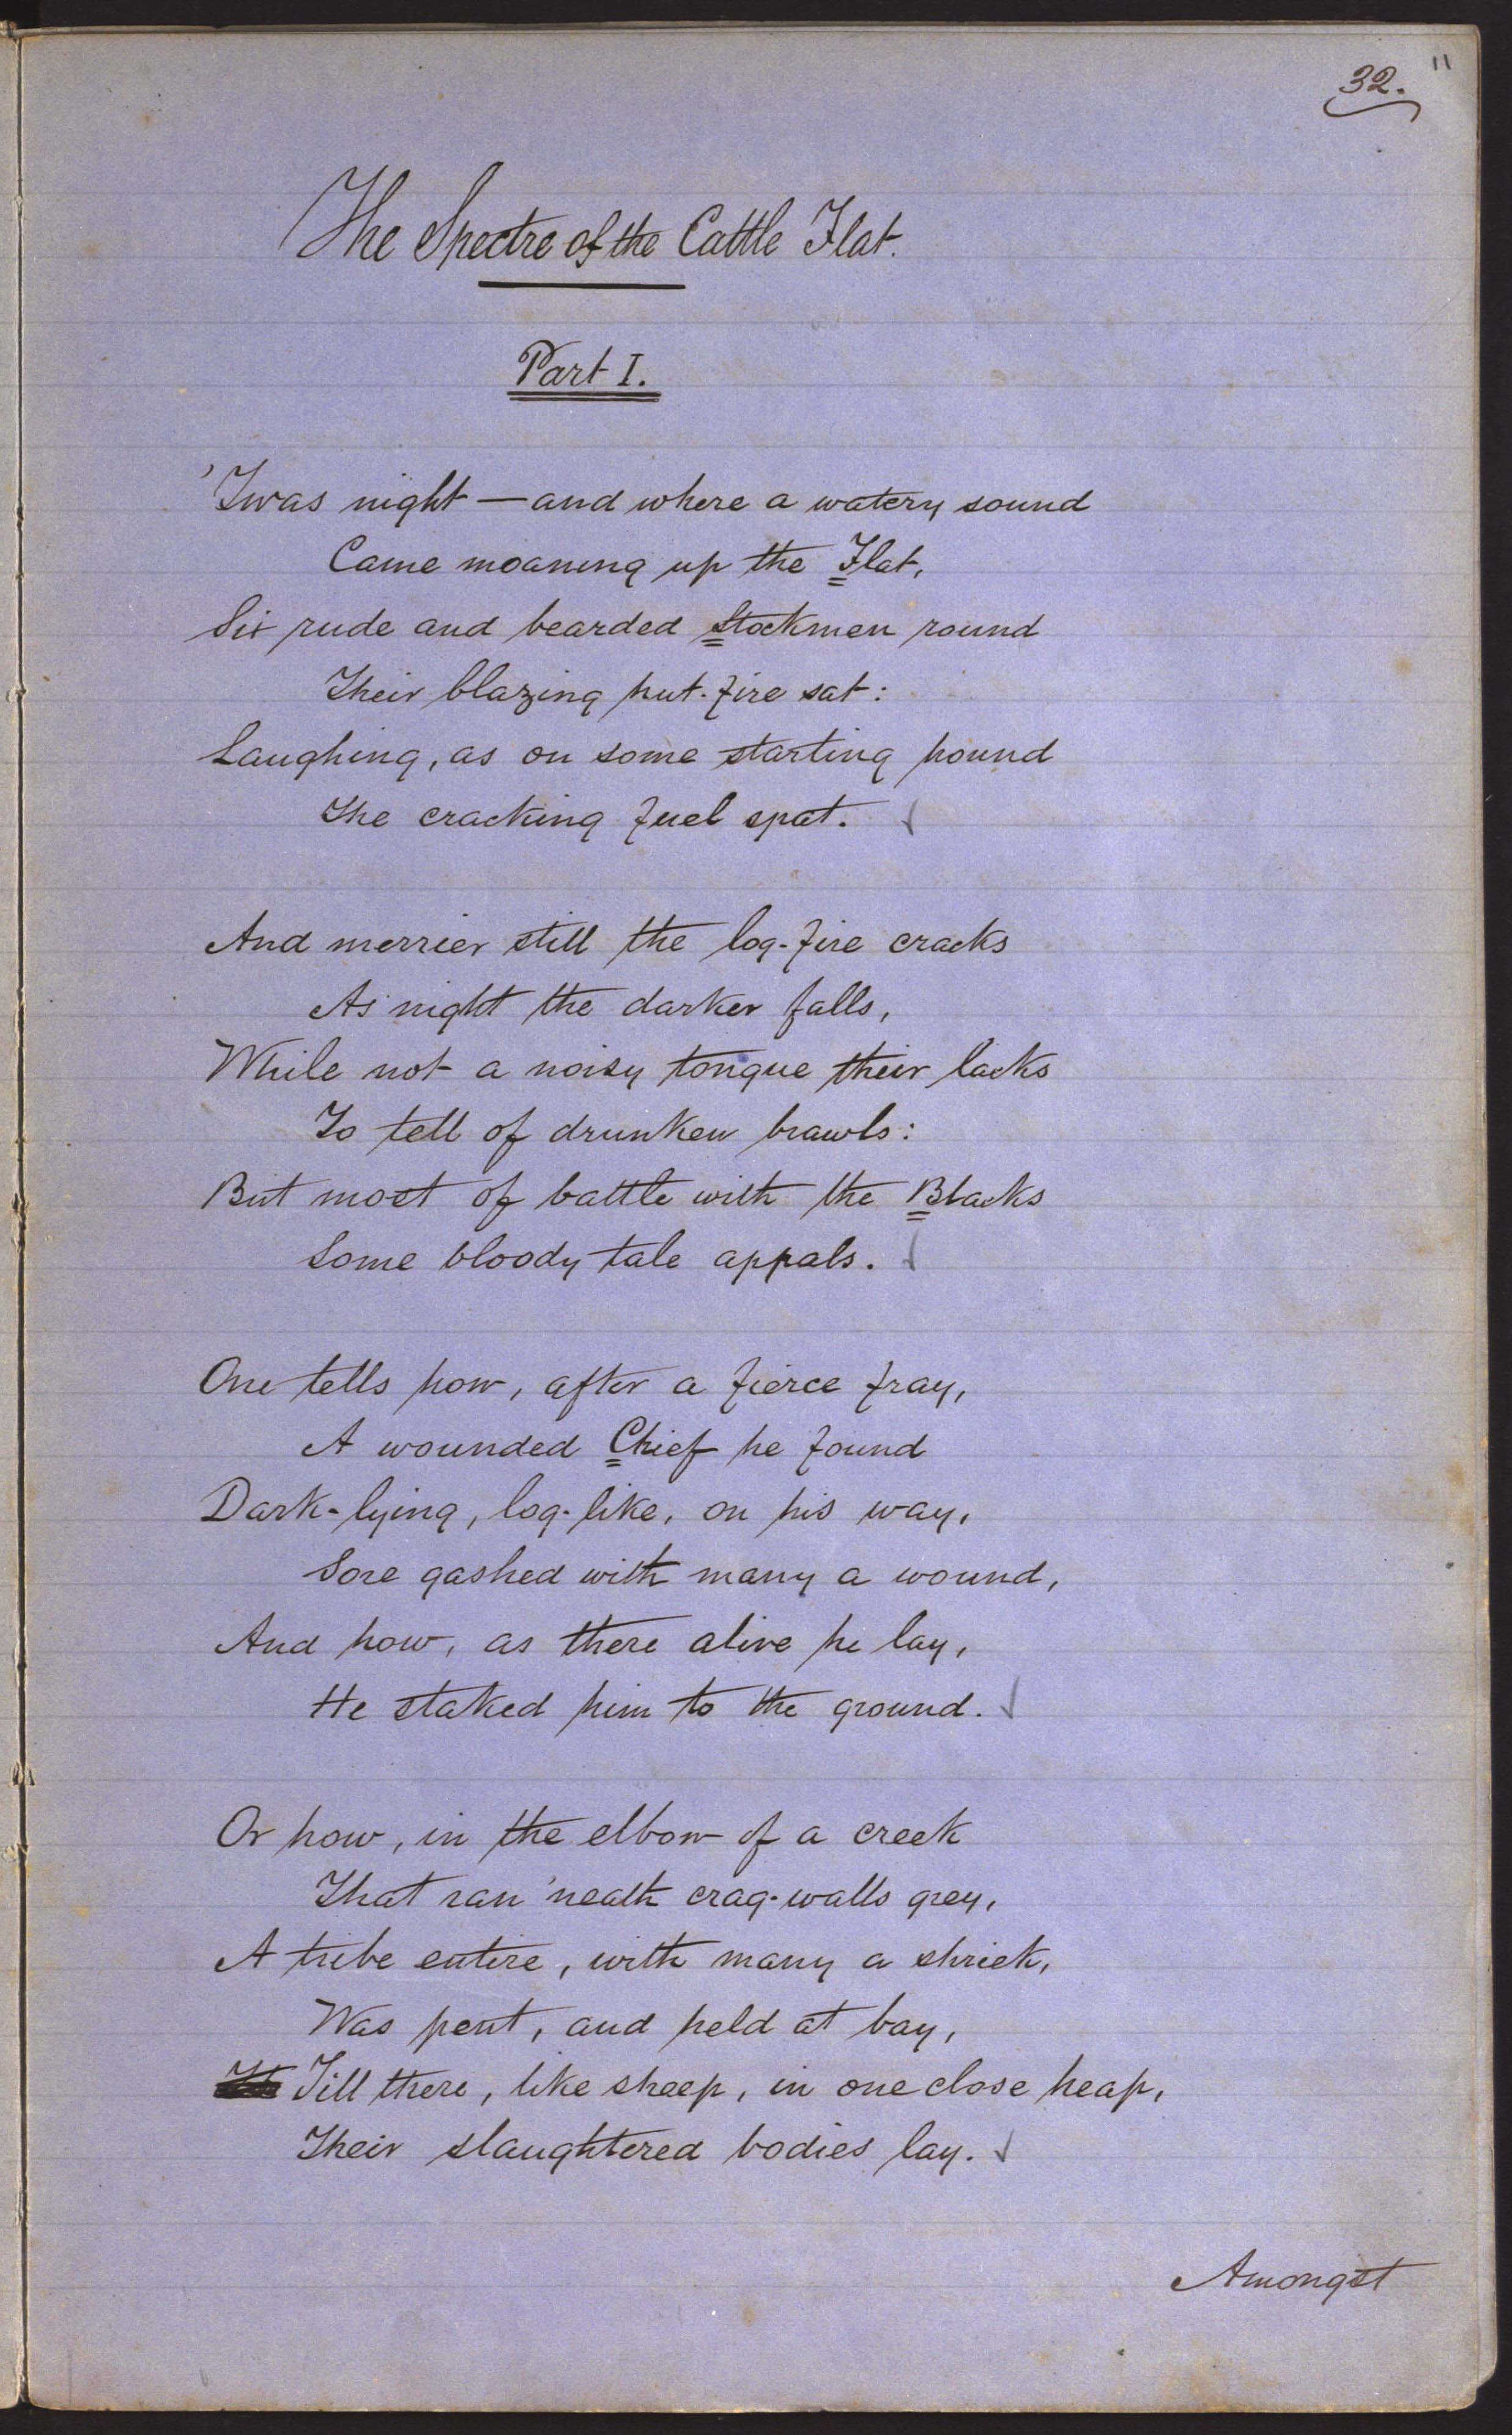 32. "
The Spectre of the Cattle Flat.
Part I.
'Twas night — and where a watery sound
Came moaning up the Flat,
Six rude and bearded Stockmen round
Their blazing hut-fire sat:
Laughing, as on some starting hound
The cracking fuel spat.
And merrier still the log-fire cracks
As night the darker falls,
While not a noisy tongue their lacks
To tell of drunken brawls:
But most of battle with the Blacks
Some bloody tale appals.
One tells how, after a fierce fray,
A wounded Chief he found
Dark-lying, log-like, on his way,
Sore gashed with many a wound,
And how, as there alive he lay,
He staked him to the ground.
Or how, in the elbow of a creek
That ran 'neath crag-walls grey,
A tribe entire, with many a shriek,
Was pent, and held at bay,
Till there, like sheep, in one close heap,
Their slaughtered bodies lay.
Amongst